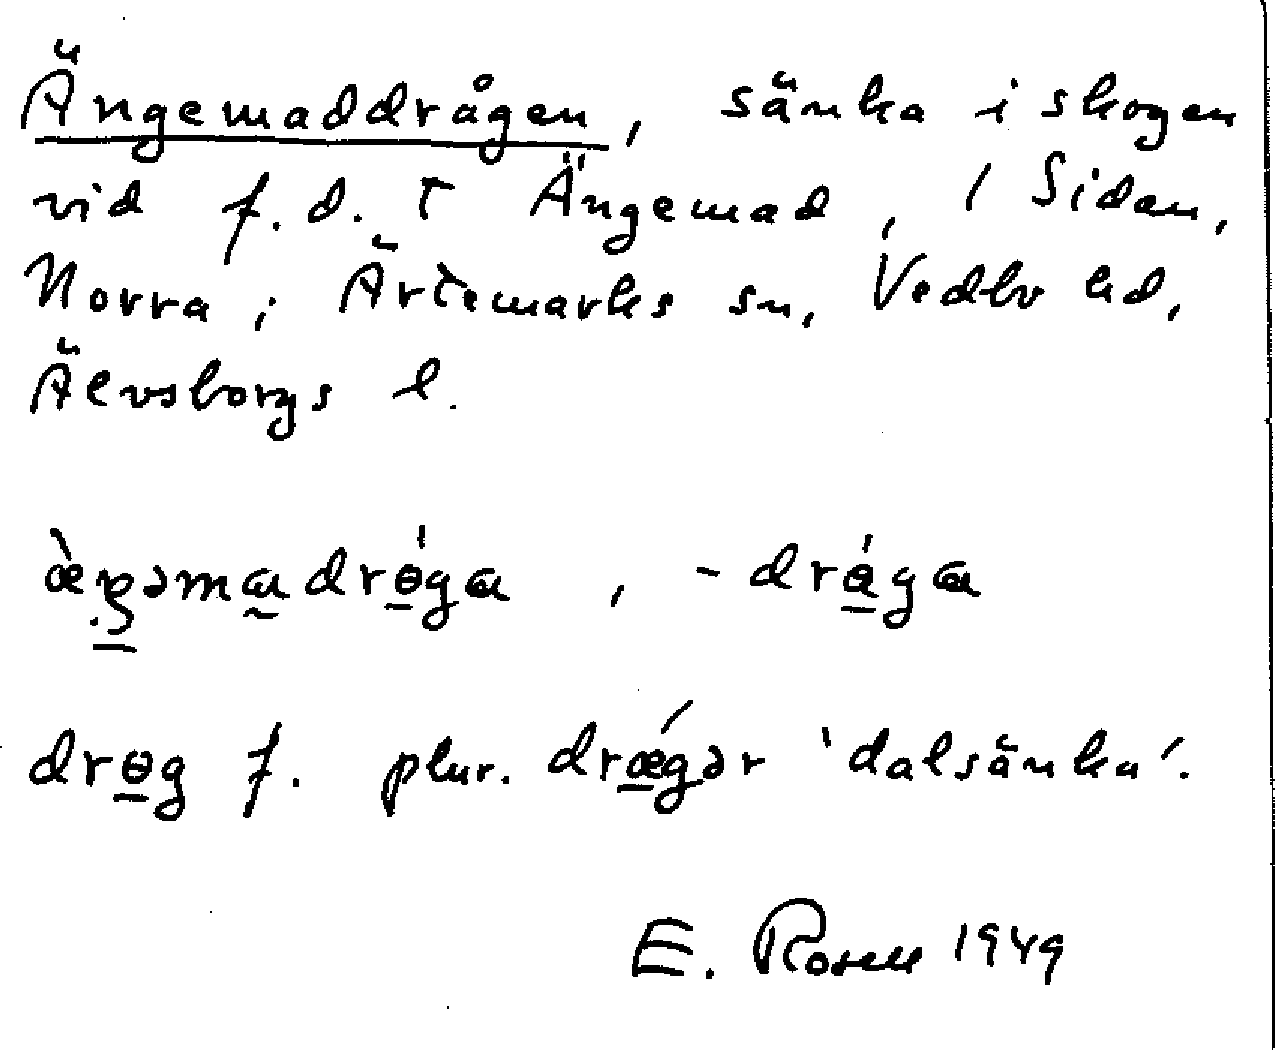 Ängemaddrågen, sänka i skogen
vid f.d. t Ängemad, 1 Sidan,
Norra i Ärtemarks sn, Vedbo hd,
Älvsborgs l.
-dråga
drɵg f. plur. drǽgər 'dalsänka'.
E. Rosell 1949